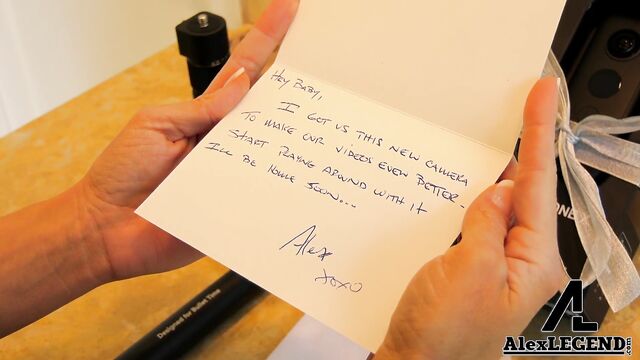 HEY BABY,
I GOT US THIS NEW CAMERA
TO MAKE OUR VIDEOS EVEN BETTER.
START PLAYING AROUND WITH IT
I'LL BE HOME SOON...
Alex
XOXO
ONE
Designed for Bullet Time
AL
AlexLEGEND.com